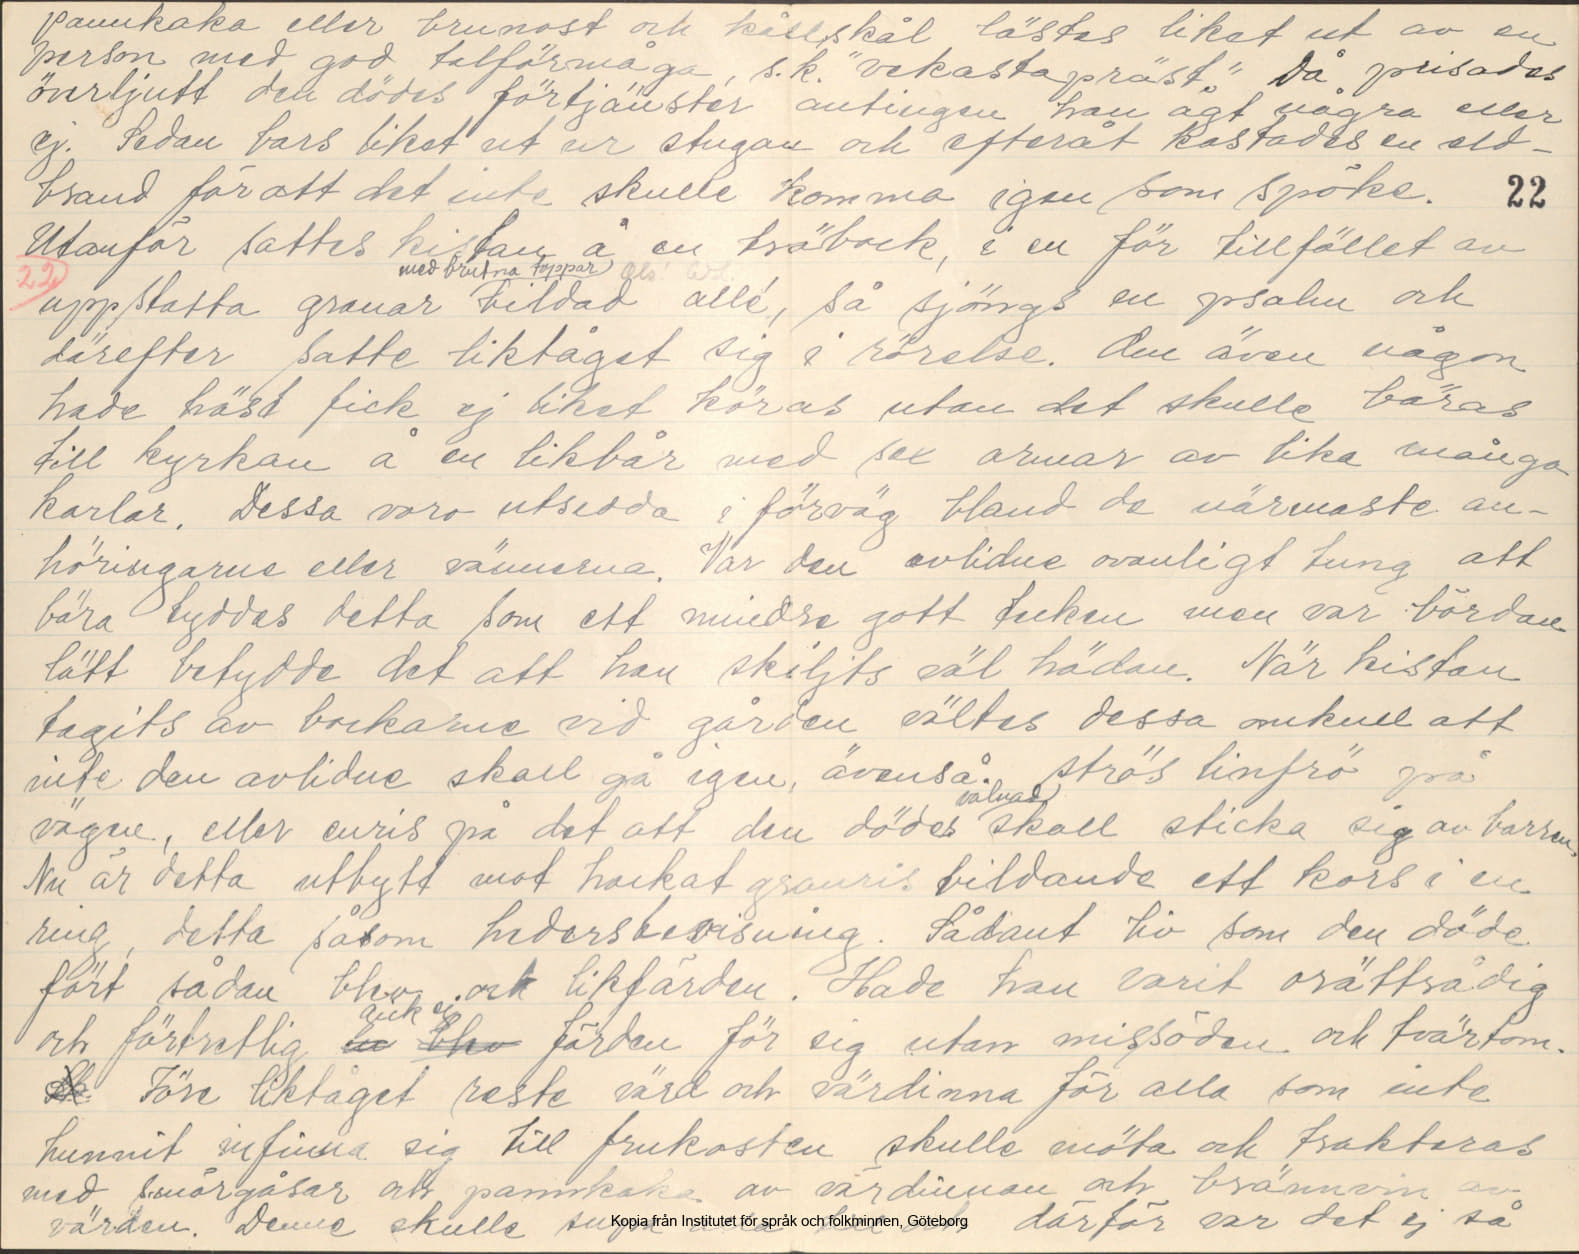 pannkaka eller brunost och kållskål lästes liket ut av en
person med god talförmåga, s.k. "vekastapräst." Då prisades
överljutt den dödes förtjänster antingen han ägt några eller
ej. Sedan bars liket ut ur stugan och efteråt kastades en eld-
brand för att det inte skulle komma igen som spöke.
22
Utanför sattes kistan å en träbock, i en för tillfället av
22
med brutna toppar
uppstasta granar bildad allé, så sjöngs en psalm och
därefter satte liktåget sig i rörelse. Om även någon
hade häst fick ej liket köras utan det skulle bäras
till kyrkan å en likbår med sex armar av lika många
karlar. Dessa voro utsedda i förväg bland de närmaste an-
höringarne eller vännerna. Var den avlidne ovanligt tung att
bära tyddes detta som ett mindre gott tecken men var bördan
lätt betydde det att han skiljts väl hädan. När kistan
tagits av bockarne vid gården vältes dessa omkull att
inte den avlidne skall gå igen, ävenså strös linfrö på
vålnad
vägen, eller enris på det att den dödes skall sticka sig av barren.
Nu är detta utbytt mot hackat granris bildande ett kors i en
ring, detta såsom hedersbevisning. Sådant liv som den döde
fört sådan blev ock likfärden. Hade han varit orättrådig
gick ej
och förtretlig färden för sig utan missöden och tvärtom.
Före liktåget reste värd och värdinna för alla som inte
hunnit infinna sig till frukosten skulle möta och trakteras
med smörgåsar och pannkaka av värdinnan och brännvin av
värden. Denne skulle supa därför var det ej så
Kopia från Institutet för språk och folkminnen, Göteborg